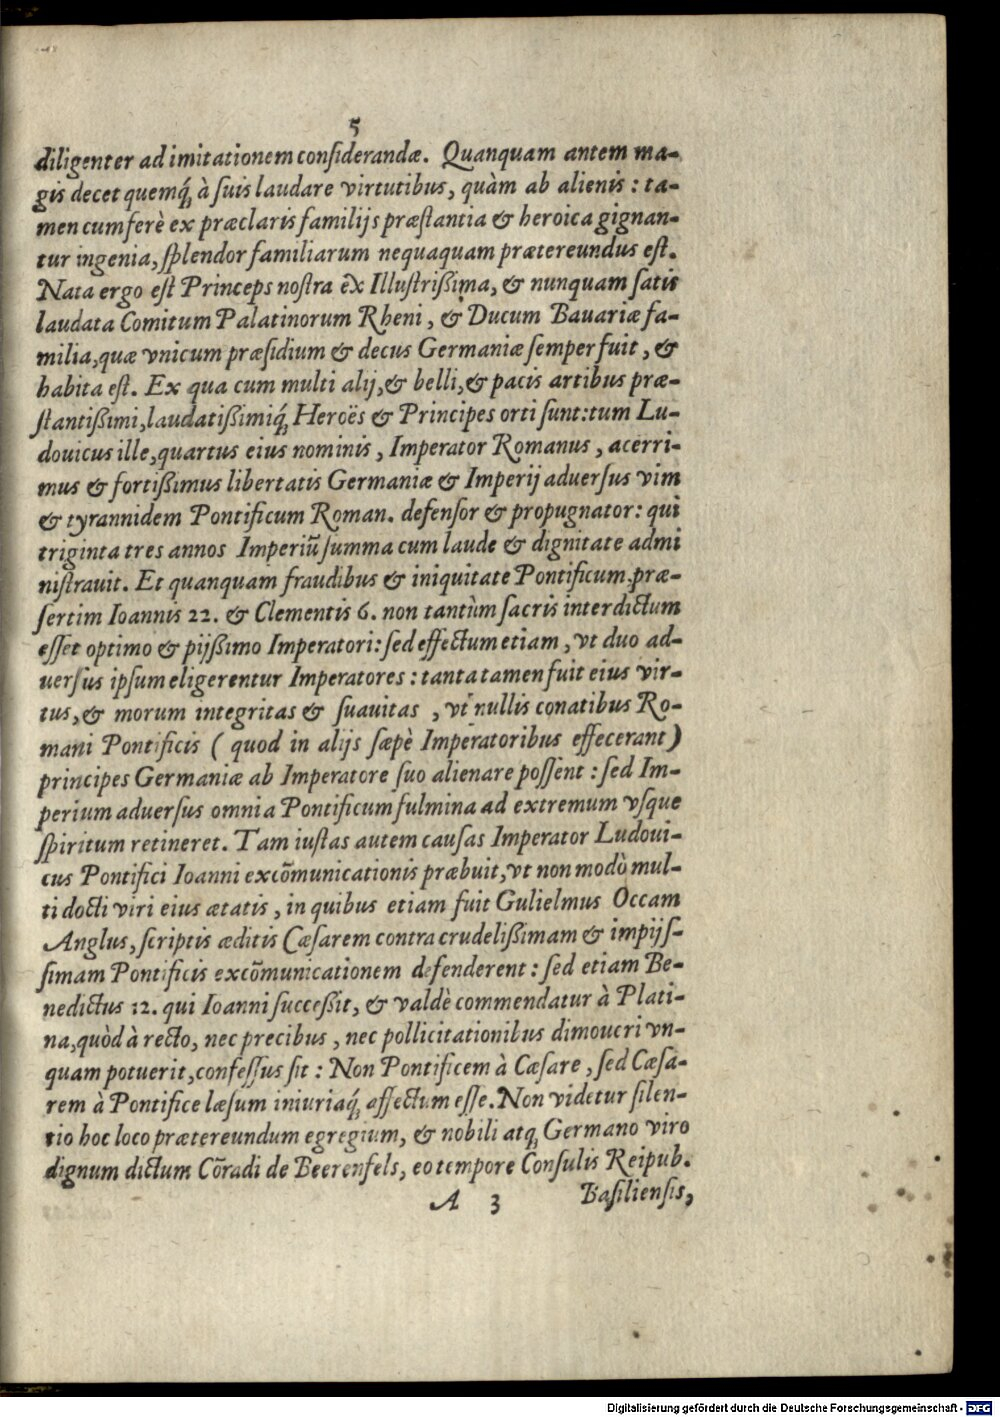 5
diligenter ad imitationem considerandæ. Quanquam antem ma-
gis decet quemq́; à suis laudare virtutibus, quàm ab alienis: ta-
men cum ferè ex præclaris familijs præstantia & heroica gignan-
tur ingenia, splendor familiarum nequaquam prætereundus est.
Nata ergo est Princeps nostra ex Illustrißima, & nunquam satis
laudata Comitum Palatinorum Rheni, & Ducum Bauariæ fa-
milia, quæ vnicum præsidium & decus Germaniæ semper fuit, &
habita est. Ex qua cum multi alij, & belli, & pacis artibus præ-
stantißimi, laudatißimiq́; Heroës & Principes orti sunt: tum Lu-
douicus ille, quartus eius nominis, Imperator Romanus, acerri-
mus & fortißimus libertatis Germaniæ & Imperij aduersus vim
& tyrannidem Pontificum Roman. defensor & propugnator: qui
triginta tres annos Imperiũ summa cum laude & dignitate admi
nistrauit. Et quanquam fraudibus & iniquitate Pontificum, præ-
sertim Ioannis 22. & Clementis 6. non tantùm sacris interdictum
esset optimo & pijßimo Imperatori: sed effectum etiam, vt duo ad-
uersus ipsum eligerentur Imperatores: tanta tamen fuit eius vir-
tus, & morum integritas & suauitas, vt nullis conatibus Ro-
mani Pontificis (quod in alijs sæpè Imperatoribus effecerant)
principes Germaniæ ab Imperatore suo alienare possent: sed Im-
perium aduersus omnia Pontificum fulmina ad extremum vsque
spiritum retineret. Tam iustas autem causas Imperator Ludoui-
cus Pontifici Ioanni excõmunicationis præbuit, vt non modò mul-
ti docti viri eius ætatis, in quibus etiam fuit Gulielmus Occam
Anglus, scriptis æditis Cæsarem contra crudelißimam & impijs-
simam Pontificis excõmunicationem defenderent: sed etiam Be-
nedictus 12. qui Ioanni succeßit, & valdè commendatur à Plati-
na, quòd à recto, nec precibus, nec pollicitationibus dimoueri vn-
quam potuerit, confessus sit: Non Pontificem à Cæsare, sed Cæsa-
rem à Pontifice læsum iniuriaq́; affectum esse. Non videtur silen-
tio hoc loco prætereundum egregium, & nobili atq; Germano viro
dignum dictum Cõradi de Beerenfels, eo tempore Consulis Reipub.
A 3 Basiliensis,
Digitalisierung gefördert durch die Deutsche Forschungsgemeinschaft - DFG